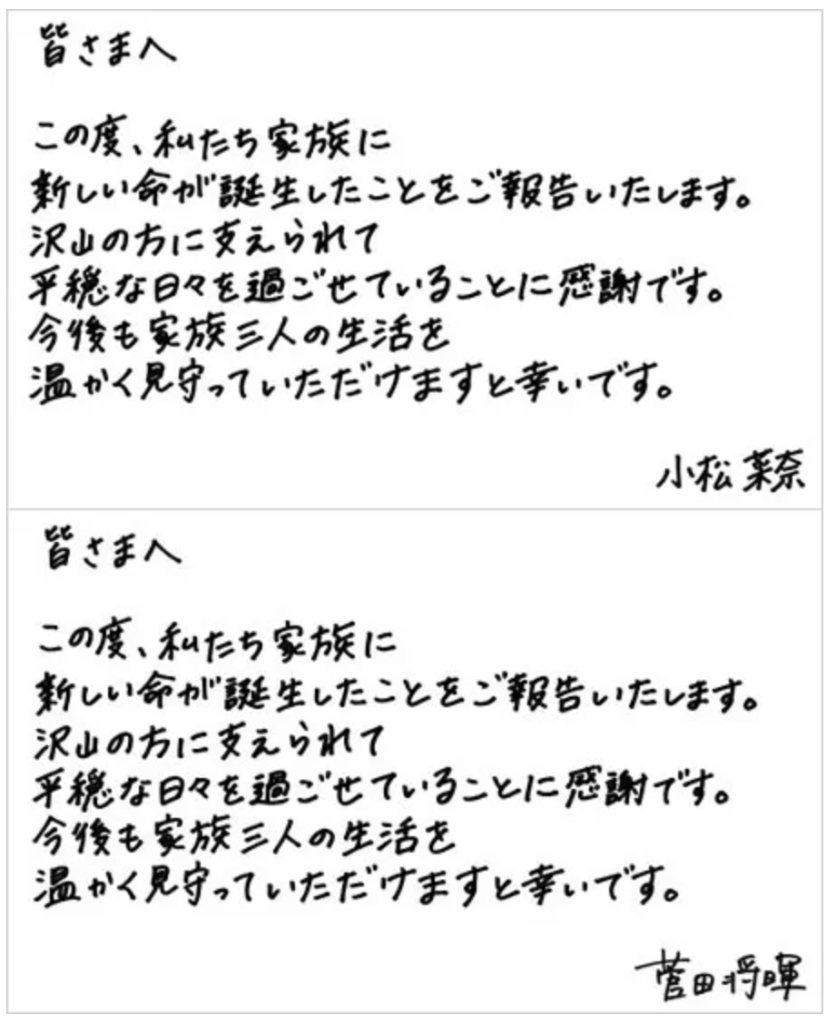 皆さまへ
この度、私たち家族に
新しい命が誕生したことをご報告いたします。
沢山の方に支えられて
平穏な日々を過ごせていることに感謝です。
今後も家族三人の生活を
温かく見守っていただけますと幸いです。
小松菜奈
皆さまへ
この度、私たち家族に
新しい命が誕生したことをご報告いたします。
沢山の方に支えられて
平穏な日々を過ごせていることに感謝です。
今後も家族三人の生活を
温かく見守っていただけますと幸いです。
菅田将暉